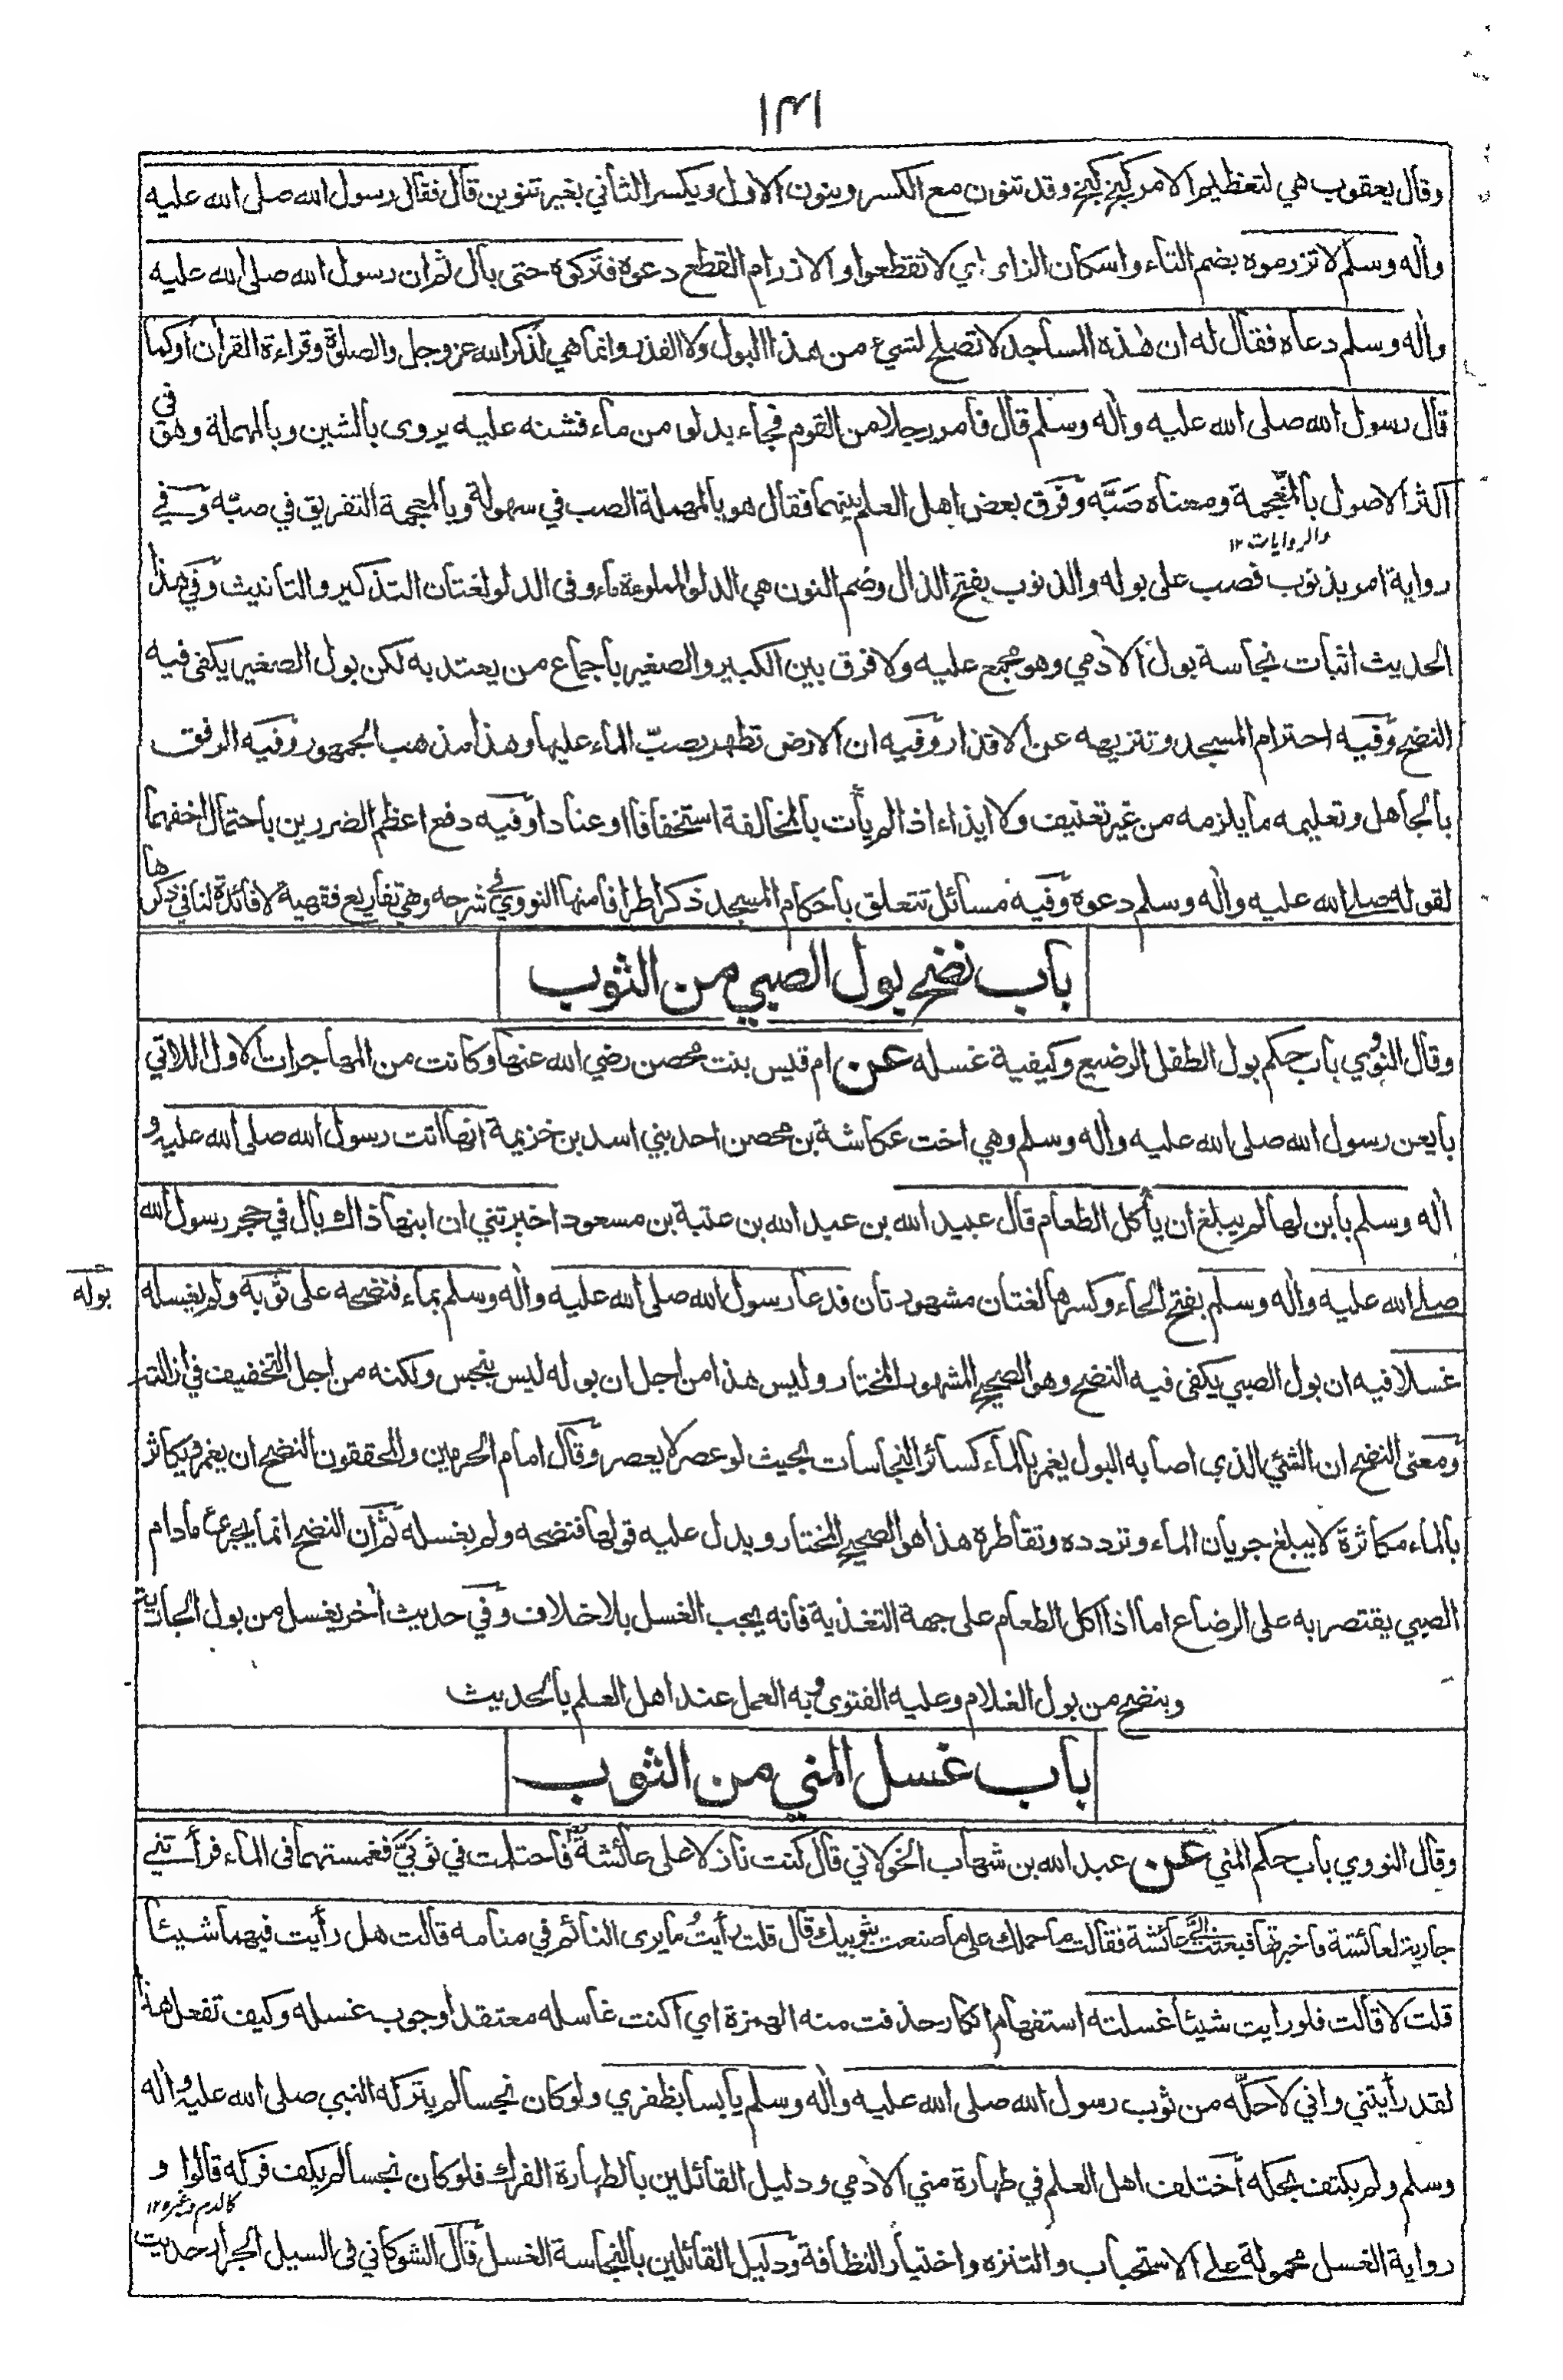 ١٣١
وقال يعقوب هي لتعظيم الامر كبخ بخ وقد تنون مع الكسر وينون الاول ويكسر الثاني بغير تنوين قال فقال رسول الله صلى الله عليه
واٰله وسلم لا تزرموه بضم التاء واسكان الزاي اي لا تقطعوا والازرام القطع دعوه فتركوه حتى بال ثم ان رسول الله صلى الله عليه
واٰله وسلم دعاه فقال له ان هذه المساجد لا تصلح لشيء من هذا البول ولا القذر وانما هي لذكر الله عز وجل والصلوة وقراءة القراٰن او كما
قال رسول الله صلى الله عليه واٰله وسلم قال فأمر رجلا من القوم فجاء بدلو من ماء فشنه عليه يروى بالشين وبالمهملة وهو في
اكثر الاصول بالمعجمة ومعناه صَبَّه وفرق بعض اهل العلم بينهما فقال هو بالمهملة الصب في سهولة وبالمعجمة التفريق في صبّه وفي
والروايات ١٢
رواية امر بذنوب فصب على بوله والذنوب بفتح الذال وضم النون هي الدلو المملوءة ماء وفى الدلو لغتان التذكير والتانيث وفي هذا
الحديث اثبات نجاسة بول الاٰدمي وهو مجمع عليه ولا فرق بين الكبير والصغير باجماع من يعتد به لكن بول الصغير يكفى فيه
النضح وفيه احترام المسجد وتنزيهه عن الاقذار وفيه ان الارض تطهر بصبّ الماء عليها وهذا مذهب الجمهور وفيه الرفق
بالجاهل وتعليمه ما يلزمه من غير تعنيف ولا ايذاء اذا لم يأت بالمخالفة استخفافا او عنادا وفيه دفع اعظم الضررين باحتمال اخفهما
لقوله صلى الله عليه واٰله وسلم دعوه وفيه مسائل تتعلق باحكام المسجد ذكر اطرافا منها النووي في شرحه وهي تفاريع فقهية لا فائدة لنا في ذكرها
باب نضح بول الصبي من الثوب
وقال النووي باب حكم بول الطفل الرضيع وكيفية غسله عن ام قيس بنت محصن رضي الله عنها وكانت من المهاجرات الاول اللاتي
بايعن رسول الله صلى الله عليه واٰله وسلم وهي اخت عكاشة بن محصن احد بني اسد بن خزيمة انها اتت رسول الله صلى الله عليه و
اٰله وسلم بابن لها لم يبلغ ان يأكل الطعام قال عبيد الله بن عبد الله بن عتبة بن مسعود اخبرتني ان ابنها ذاك بال في حجر رسول الله
صلى الله عليه واٰله وسلم بفتح الحاء وكسرها لغتان مشهورتان فدعا رسول الله صلى الله عليه واٰله وسلم بماء فنضحه على ثوبه ولم يغسله
بوله
غسلا فيه ان بول الصبي يكفى فيه النضح وهو الصحيح المشهور المختار وليس هذا من اجل ان بوله ليس بنجس ولكنه من اجل التخفيف في ازالته
ومعنى النضح ان الشيء الذي اصابه البول يغمر بالماء كسائر النجاسات بحيث لو عصر لا يعصر وقال امام الحرمين والمحققون النضح ان يغمر ويكاثر
بالماء مكاثرة لا يبلغ جريان الماء وتردده وتقاطره هذا هو الصحيح المختار ويدل عليه قولها فنضحه ولم يغسله ثم ان النضح انما يجزئ ما دام
الصبي يقتصر به على الرضاع اما اذا اكل الطعام على جهة التغذية فانه يجب الغسل بلا خلاف وفي حديث اٰخر يغسل من بول الجارية
وينضح من بول الغلام وعليه الفتوى وبه العمل عند اهل العلم بالحديث
باب غسل المني من الثوب
وقال النووي باب حكم المني عن عبد الله بن شهاب الخولاني قال كنت نازلا على عائشة فاحتلمت في ثوبَيَّ فغمستهما فى الماء فرأتني
جارية لعائشة فاخبرتها فبعثت اليَّ عائشة فقالت ما حملك على ما صنعت بثوبيك قال قلت رأيتُ ما يرى النائم في منامه قالت هل رأيت فيهما شيئا
قلت لا قالت فلو رايت شيئا غسلته استفهام انكار حذفت منه الهمزة اي اكنت غاسله معتقدا وجوب غسله وكيف تفعل هذا
لقد رأيتني واني لاحكّه من ثوب رسول الله صلى الله عليه واٰله وسلم يابسا بظفري ولو كان نجسا لم يتركه النبي صلى الله عليه واٰله
وسلم ولم يكتف بحكه اختلف اهل العلم في طهارة مني الاٰدمي ودليل القائلين بالطهارة الفرك فلو كان نجسا لم يكف فركه قالوا و
كالدم وغيره ١٢
رواية الغسل محمولة على الاستحباب والتنزه واختيار النظافة ودليل القائلين بالنجاسة الغسل قال الشوكاني فى السيل الجرار حديث